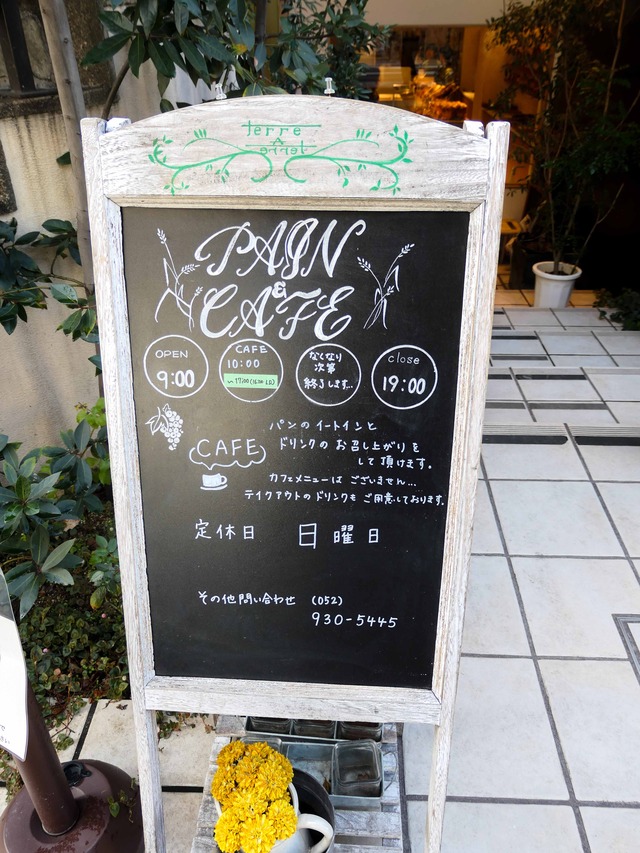 terre
à
PAIN
&
CAFE
OPEN
9:00
CAFE
10:00
〜17:00(16:30 L.O)
なくなり
次第
終了します…
close
19:00
CAFE
パンのイートインと
ドリンクの お召し上がりを
して頂けます。
カフェメニューは ございません…
テイクアウトのドリンクも ご用意しております。
定休日 日曜日
その他問い合わせ (052)
930-5445